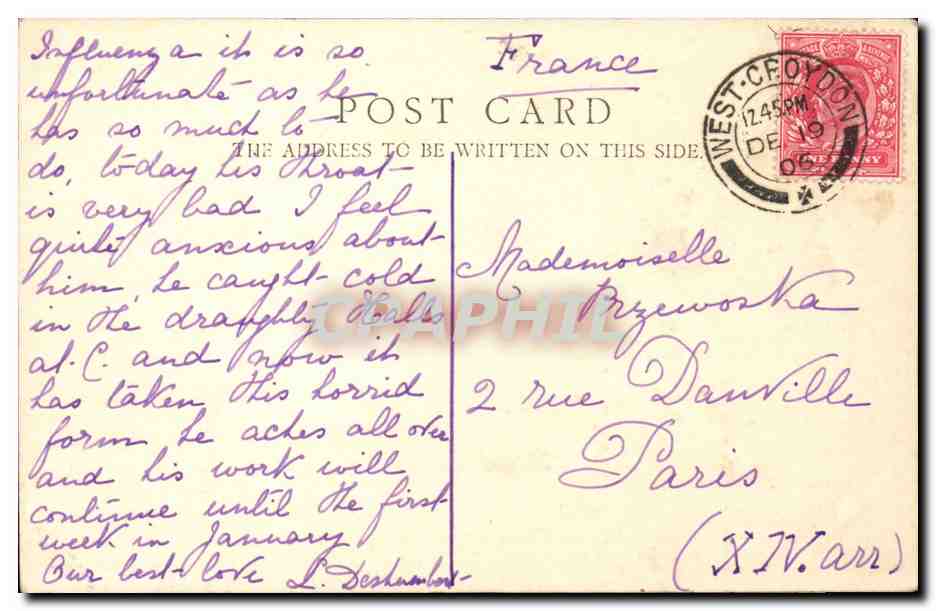 Influenza it is so
unfortunate as he
has so much to
do, today his throat
is very bad I feel
quite anxious about
him, he caught cold
in the draughty Halls
at C. and now it
has taken this horrid
form, he aches all over
and his work will
continue until the first
week in January
Our best love L.
France
POST CARD
THE ADDRESS TO BE WRITTEN ON THIS SIDE.
WEST-CROYDON
12.45PM
DE 19
06
ONE PENNY
Mademoiselle
Przewoska
2 rue Danville
Paris
(XIV. arr)
CPAPHIL